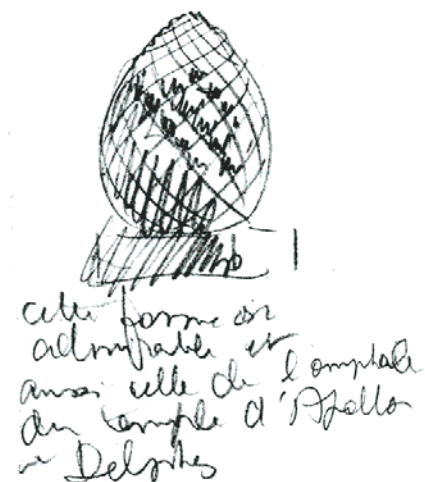 cette forme est
admirable et
aussi celle de l'omphale
du temple d'Apollo
a Delphes